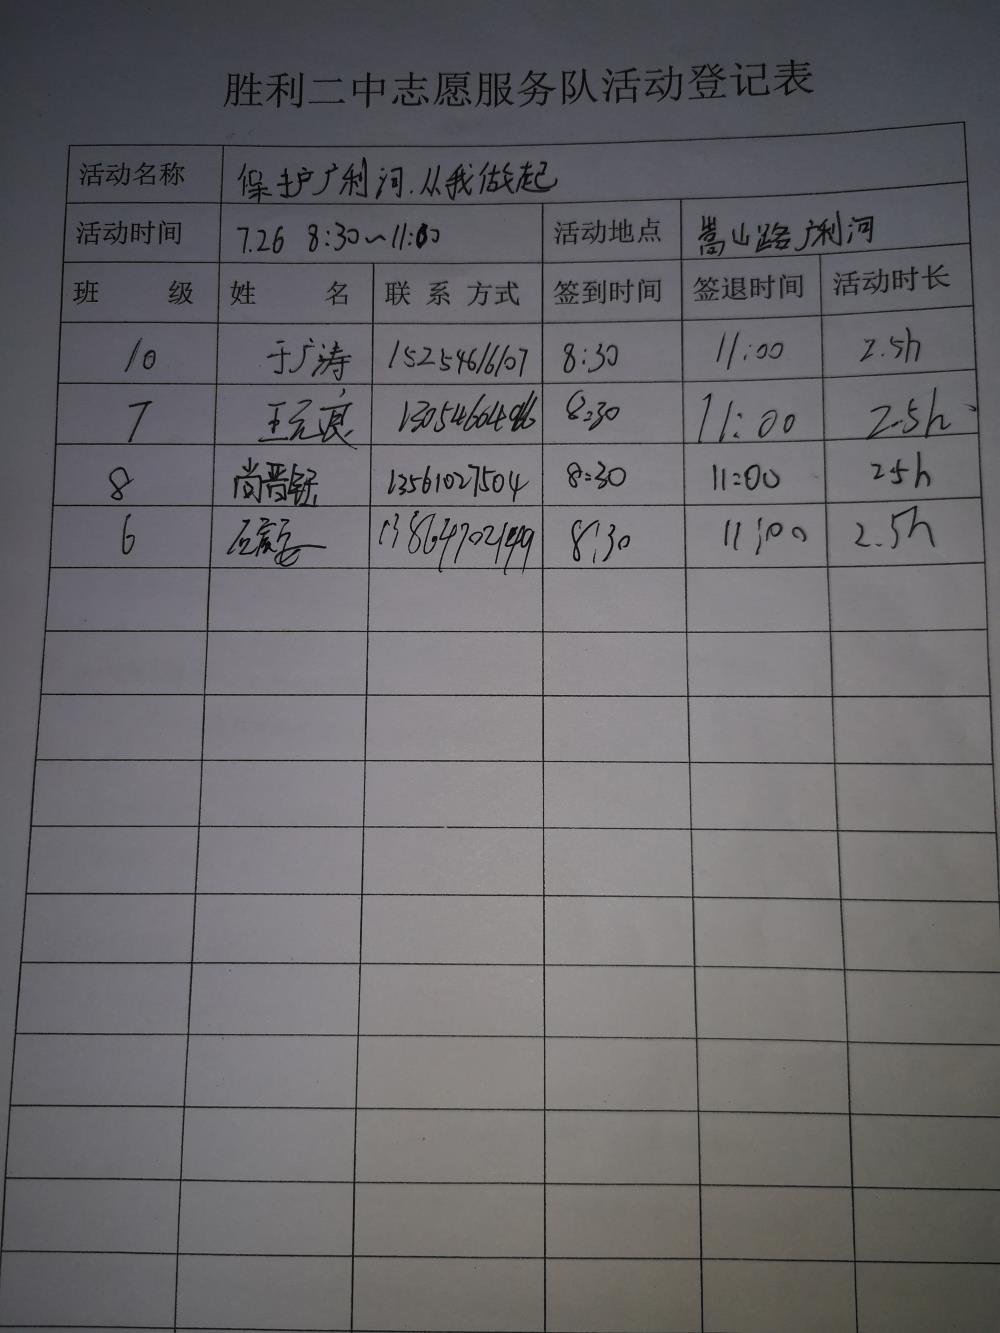 胜利二中志愿服务队活动登记表
活动名称 保护广利河.从我做起
活动时间 7.26 8:30~11:00 活动地点 嵩山路广利河
班 级 姓 名 联 系 方式 签到时间 签退时间 活动时长
10 于广涛 15254616107 8:30 11:00 2.5h
7 王元良 8:30 11:00 2.5h
8 尚晋钰 13561027504 8:30 11:00 2.5h
6 8:30 11:00 2.5h